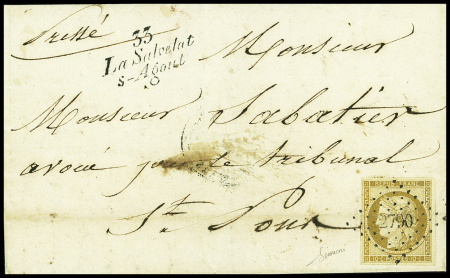 Pressé
33
La Salvetat
s-Agout
Monsieur
Monsieur Sabatier
avoué près le tribunal
St. Pons
REPUB. FRANC.
2790